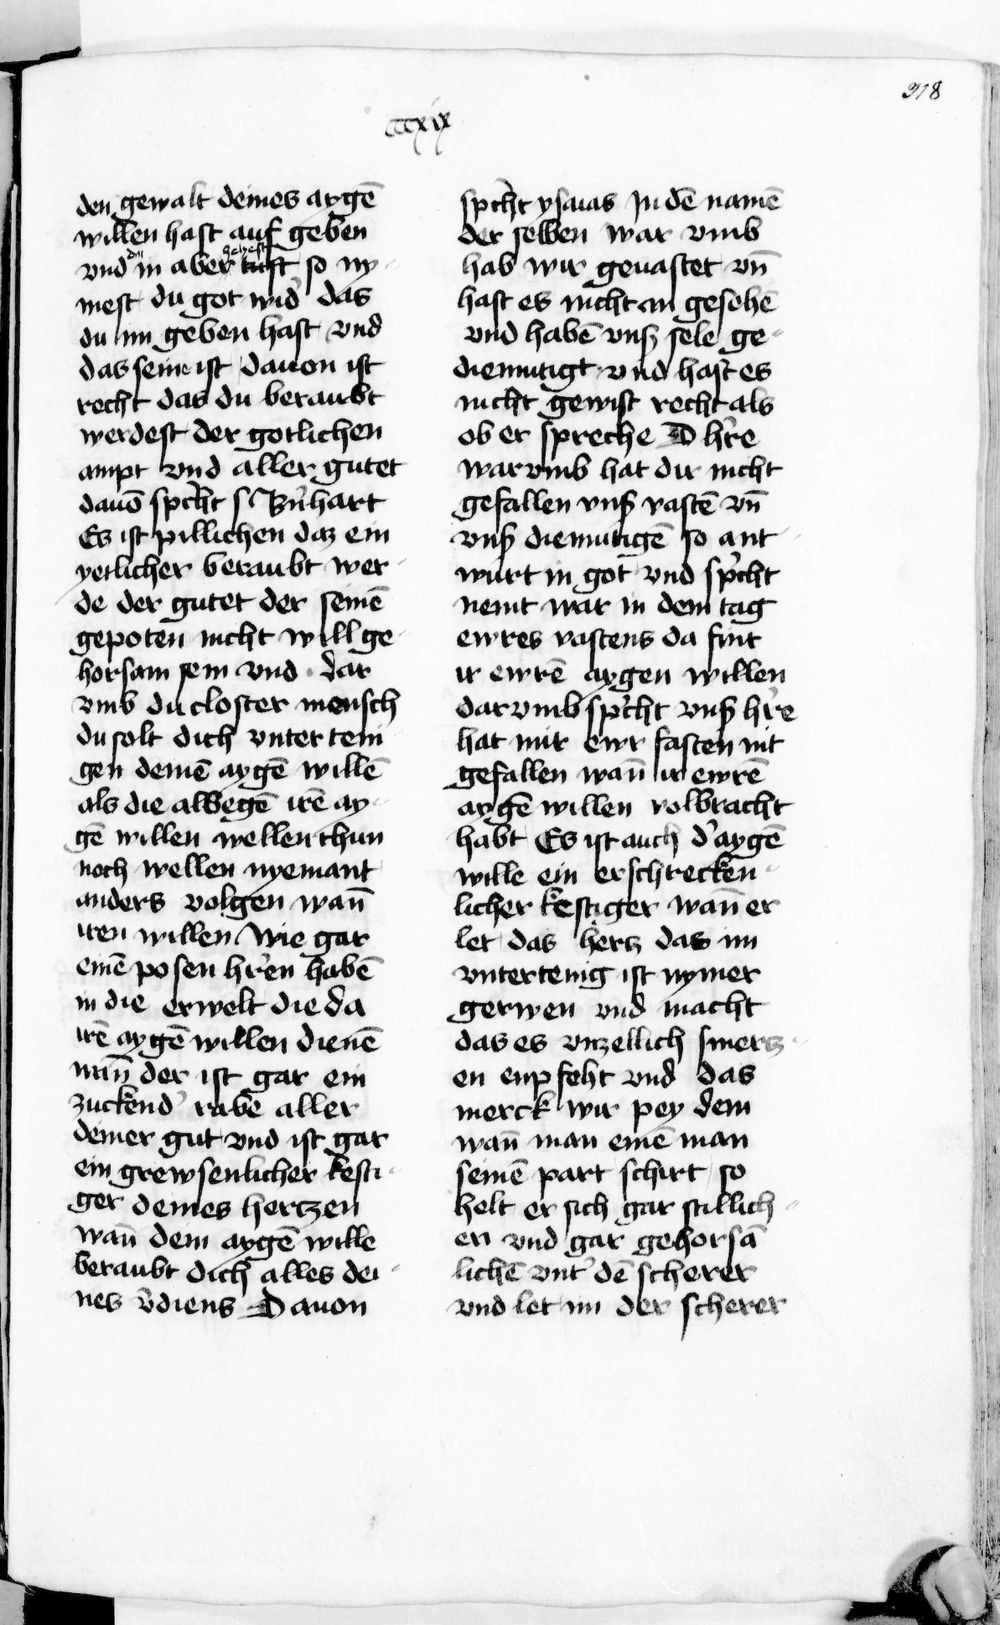 318
cccxix
den gewalt deines aygē
willen hast auf geben
vnd du in aber tust so ny-
mest du got wid' das
du im geben hast vnd
das sein ist dauon ist
recht das du beraubt
werdest der gotlichen
ampt vnd aller gutet
dauō spc̄ht s Bn̄hart
Es ist pillichen daz ein
yetlicher beraubt wer-
de der gutet der seinē
gepoten nicht will ge-
horsam sein vnd dar
vmb du closter mensch
du solt dich vnter teni
gen deinē aygē willē
als die albegē irē ay-
gē willen wellen thun
noch wellen nyemant
anders volgen wan̄
iren willen Wie gar
einē posen hr̄en habē
in die erwelt die da
irē aygē willen dienē
wan̄ der ist gar ein
zuckend' rabe aller
deiner gut vnd ist gar
ein grewsenlicher kesti-
ger deines hertzen
wan̄ dein aygē wille
beraubt dich alles dei-
nes v'diens Dauon
spc̄ht ysaias In dē namē
der selben war vmb
hab wir geuastet vn̄
hast es nicht an gesehē
vnd habē vnß sele ge-
diemutigt vnd hast es
nicht gewist recht als
ob er spreche D hr̄e
warvmb hat dir nicht
gefallen vnß vastē vn̄
vnß diemutigē so ant-
wurt in got vnd sp'cht
nemt war in dem tag
ewres vastens da fint
ir ewrē aygen willen
darvmb sp'cht vnß hr̄e
hat mir ewr fasten nit
gefallen wan̄ ir ewrē
aygē willen volbracht
habt Es ist auch d' aygē
wille ein erschrecken-
licher kestiger wan̄ er
let das hertz das im
vntertenig ist nymer
gerwen vnd macht
das es vnzellich smertz-
en enpfeht vnd das
merck wir pey dem
wan̄ man einē man
seinē part schirt so
helt er sich gar stillich-
en vnd gar gehorsā
lichē vnt' dē scherer
vnd let im der scherer